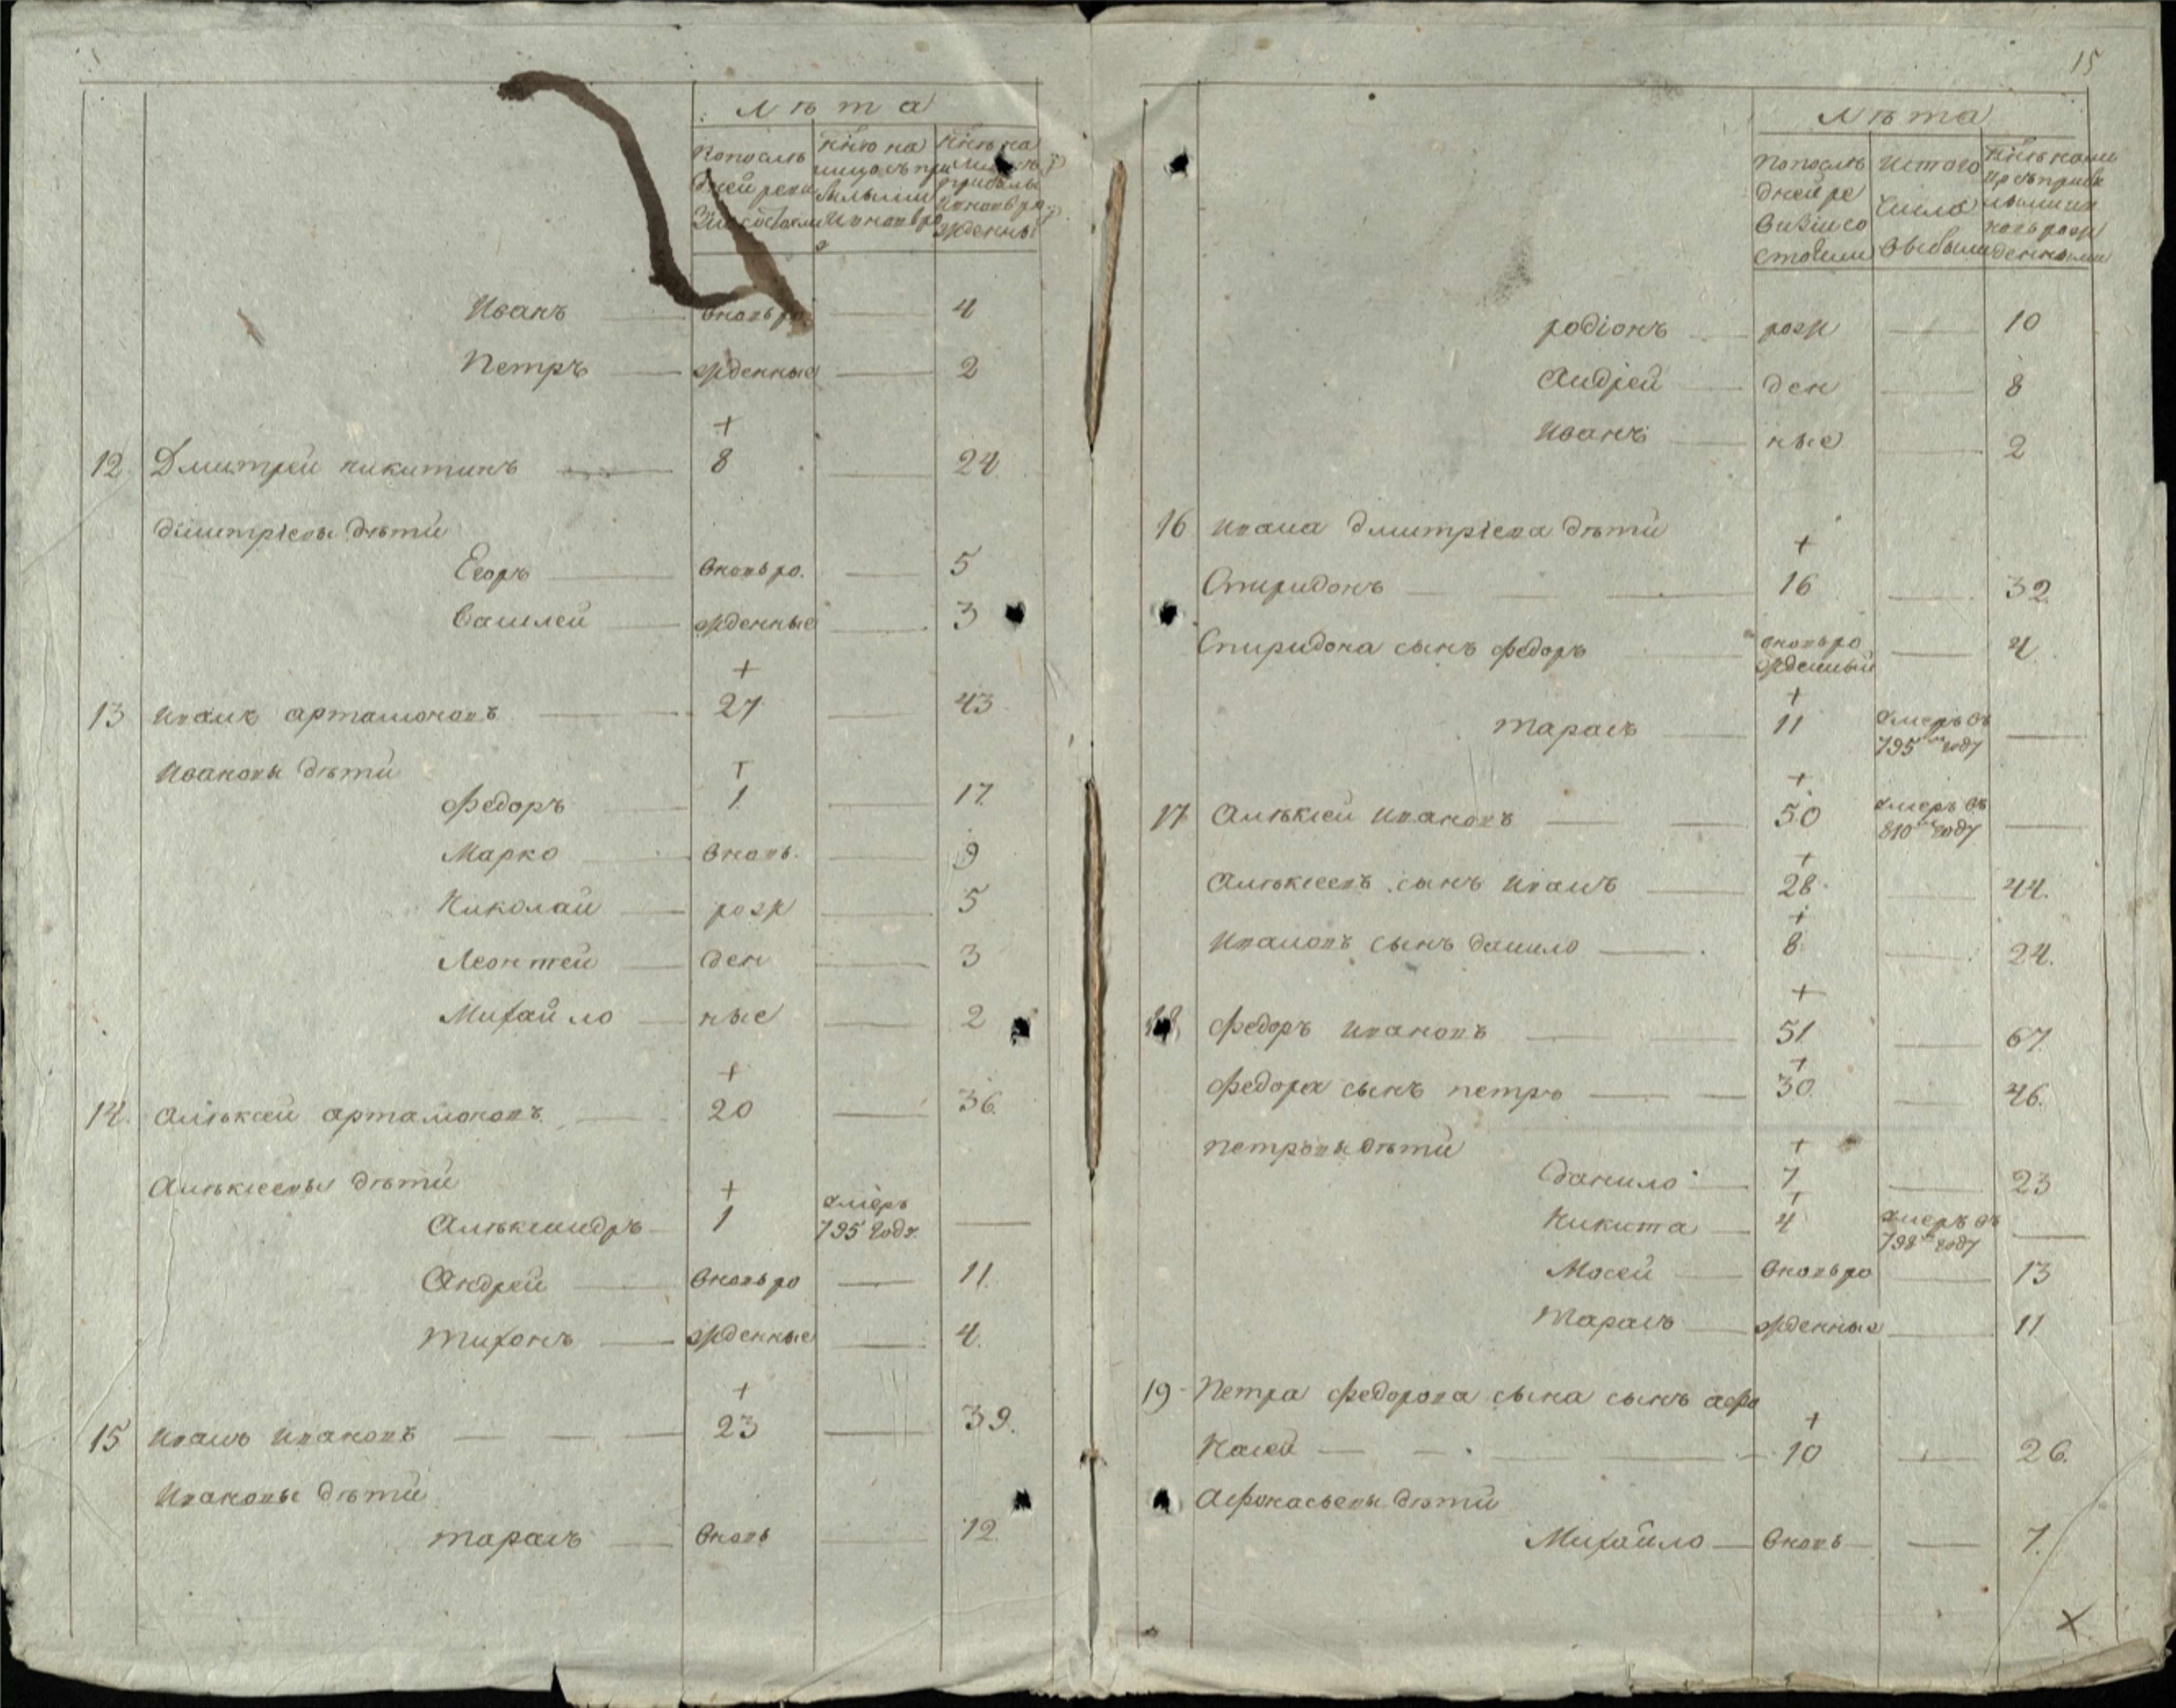 Лѣта
Иванъ вновь ро 4
Петръ жденные 2
+
12 Дмитрей никитинъ 8 24
дмитрiевы дѣти
Егоръ вновь ро. 5
Василей жденные 3
+
13 иванъ артамоновъ 27 43
Ивановы дѣти +
федоръ 1 17.
Марко вновь. 9
Николай рож 5
Леонтей ден 3
Михайло ные 2
+
14. алѣксей артамоновъ 20 36.
Алѣксеевы дѣти + умеръ
Алѣксандръ 1 795 году.
Андрей вновь ро 11.
тихонъ жденные 4.
+
15 иванъ ивановъ 23 39.
ивановы дѣти
тарасъ вновь 12
15
Лѣта
попослѣ изтого
дней ре числа
визiи со
стояли выбыли
родiонъ рож 10
Андрей ден 8
Иванъ ные 2
16 ивана дмитрiева дѣти +
Спиридонъ 16 32
Спиридона сынъ федоръ вновь ро 4
жденный
+
тарасъ 11 умеръ въ
795 году
+
17 Алѣксей ивановъ 50 умеръ въ
810 году
+
Алѣксеевъ сынъ иванъ 28 44.
+
ивановъ сынъ данило 8 24.
+
18 федоръ ивановъ 51 67.
+
федора сынъ петръ 30 46.
петровы дѣти +
данило 7 23
+
Никита 4 умеръ въ
798 году
Мосей вновь ро 13
тарасъ жденные 11
19 Петра федорова сына сынъ афо
+
насей 10 26.
Афонасьевы дѣти
Михайло вновь 7.